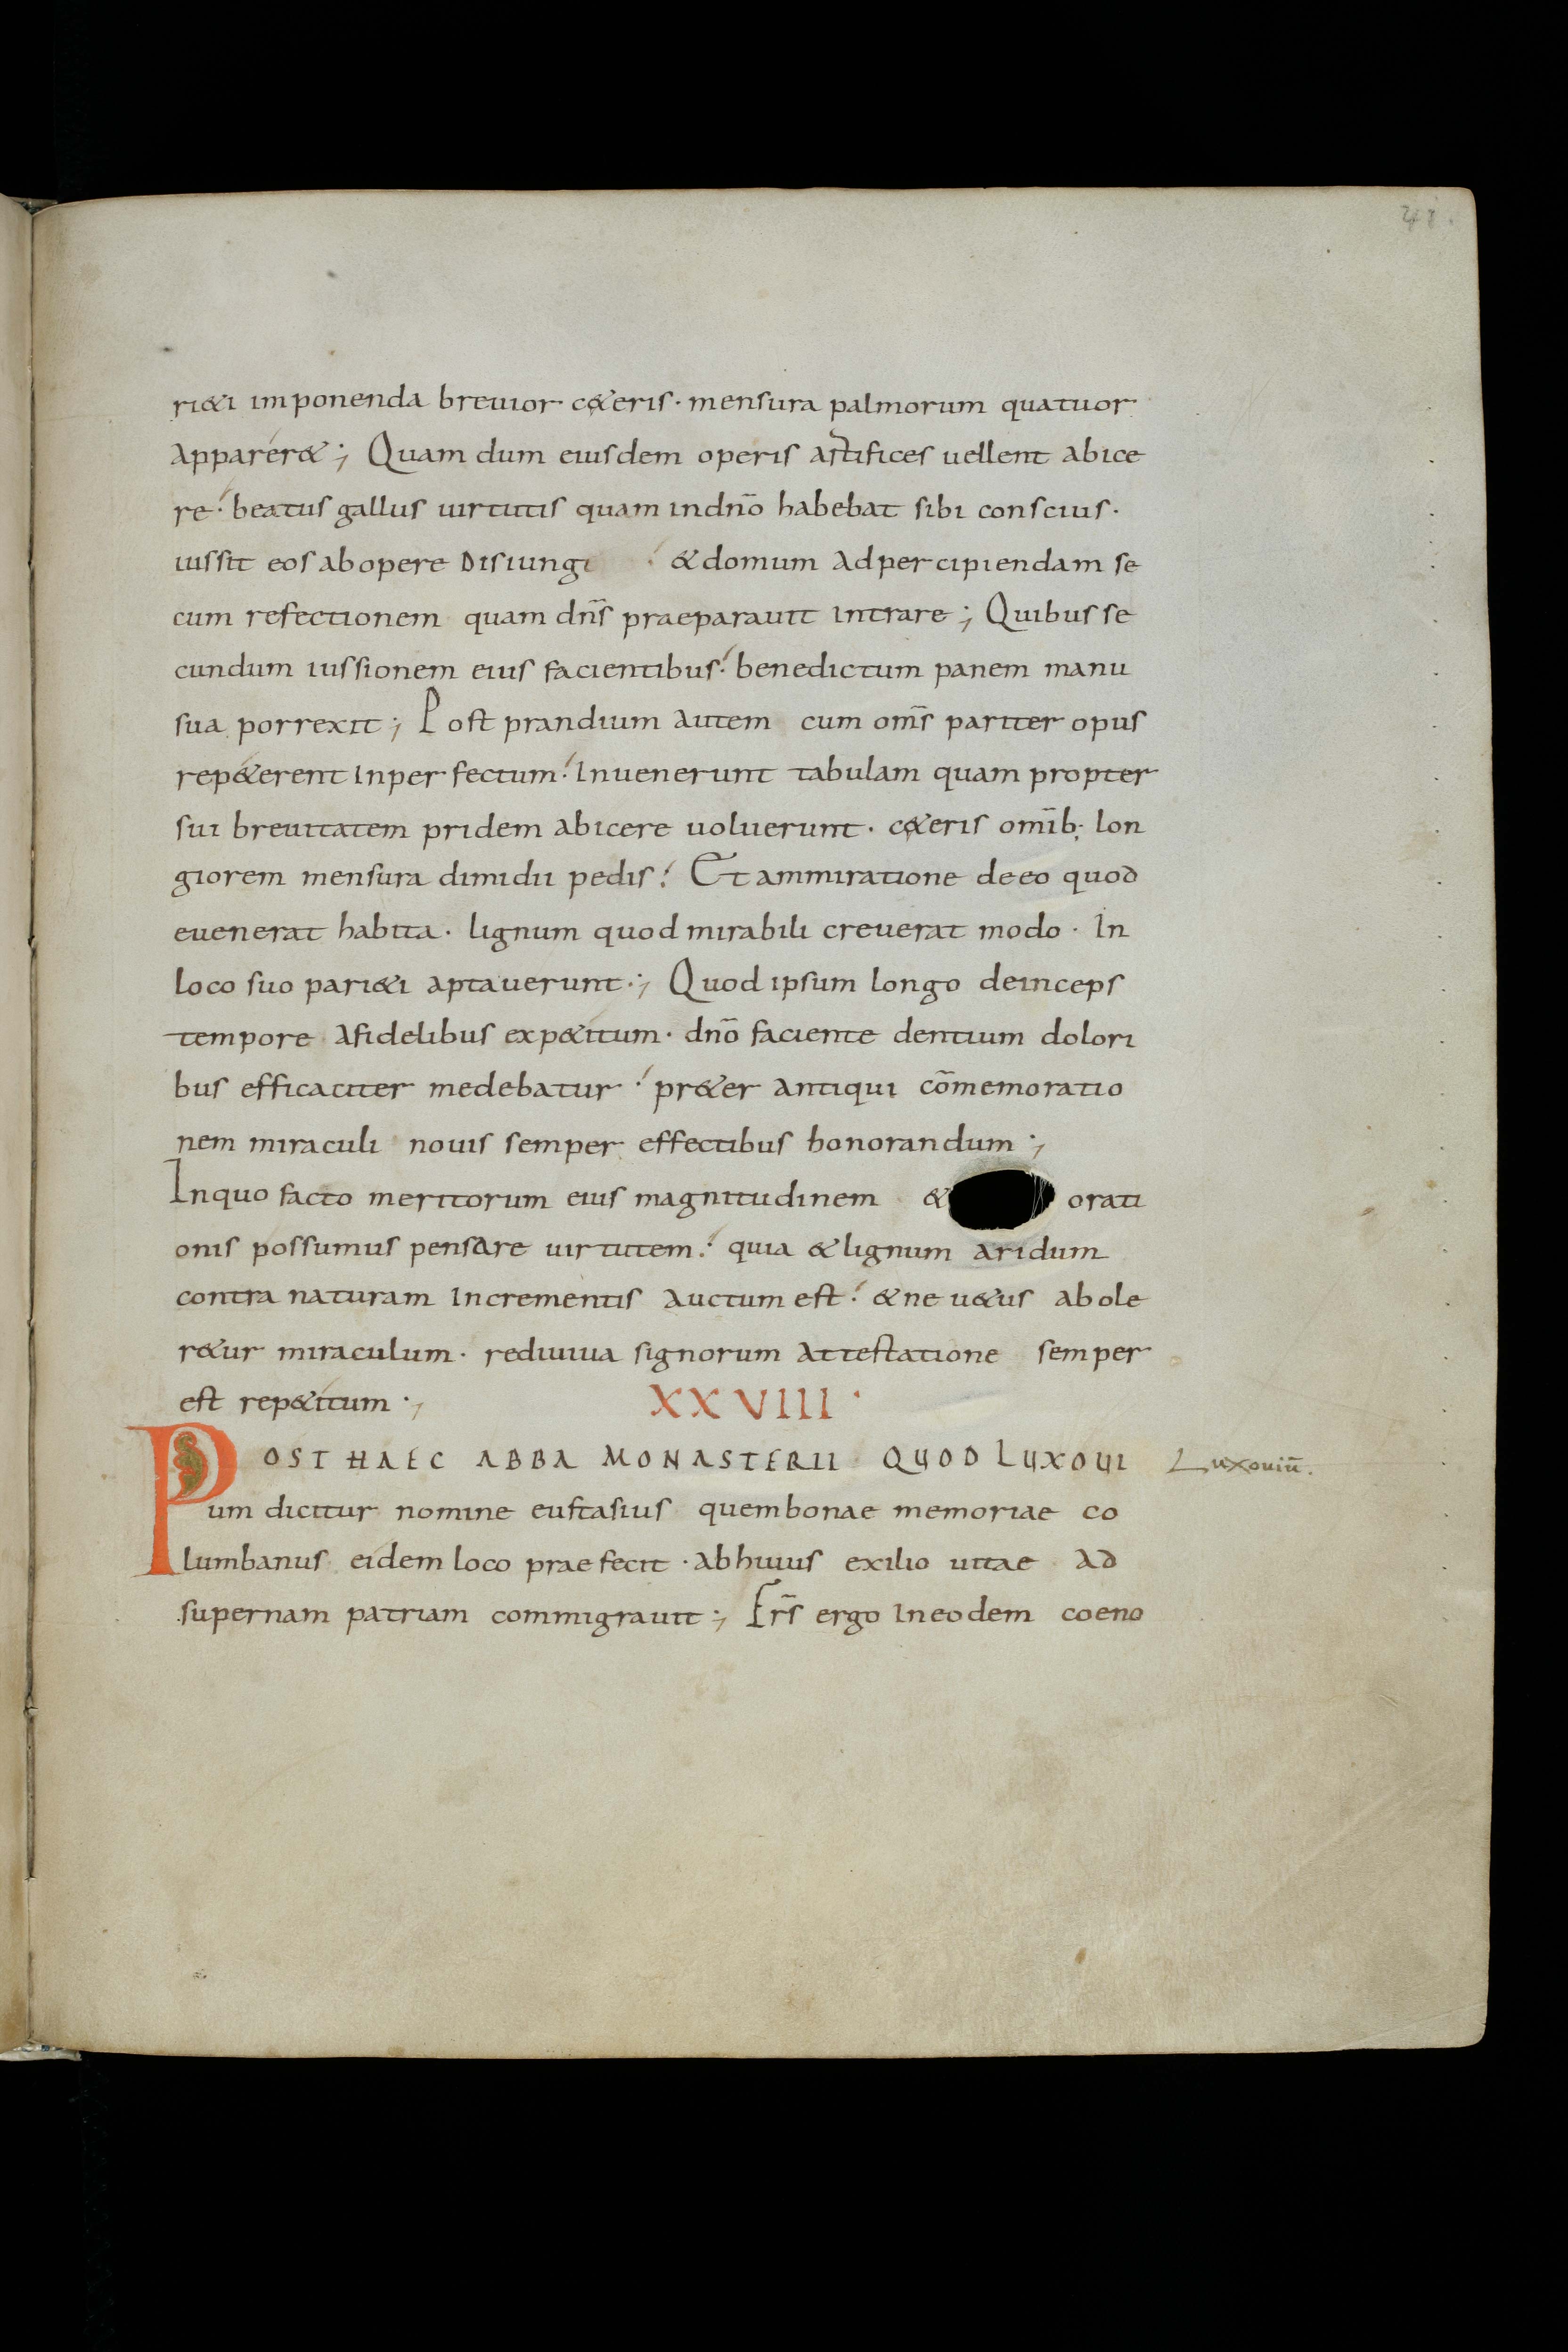 41.
ri&i imponenda breuior c&eris · mensura palmorum quatuor
apparer& ·; Quam dum eiusdem operis artifices uellent abice
re · beatus gallus uirtutis quam indn̄o habebat sibi conscius ·
iussit eos abopere disiungi · & domum adpercipiendam se
cum refectionem quam dn̄s praeparauit intrare ·; Quibus se
cundum iussionem eius facientibus · benedictum panem manu
sua porrexit ·; Post prandium autem cum om̄s pariter opus
rep&erent inperfectum · Inuenerunt tabulam quam propter
sui breuitatem pridem abicere uoluerunt · c&eris om̄ib; lon
giorem mensura dimidii pedis · Et ammiratione deeo quod
euenerat habita · lignum quod mirabili creuerat modo · In
loco suo pari&i aptauerunt ·; Quod ipsum longo deinceps
tempore afidelibus exp&itum · dn̄o faciente dentium dolori
bus efficaciter medebatur · pr&er antiqui cōmemoratio
nem miraculi nouis semper effectibus honorandum ·;
Inquo facto meritorum eius magnitudinem & orati
onis possumus pensare uirtutem · quia &lignum aridum
contra naturam incrementis auctum est · &ne u&us abole
r&ur miraculum · rediuiua signorum attestatione semper
est rep&itum ·; XXVIII ·
POST HAEC ABBA MONASTERII QUOD LUXOUI Luxouiū.
um dicitur nomine eustasius quembonae memoriae co
lumbanus eidem loco praefecit · abhuius exilio uitae ad
supernam patriam commigrauit ·; Frs̄ ergo ineodem coeno